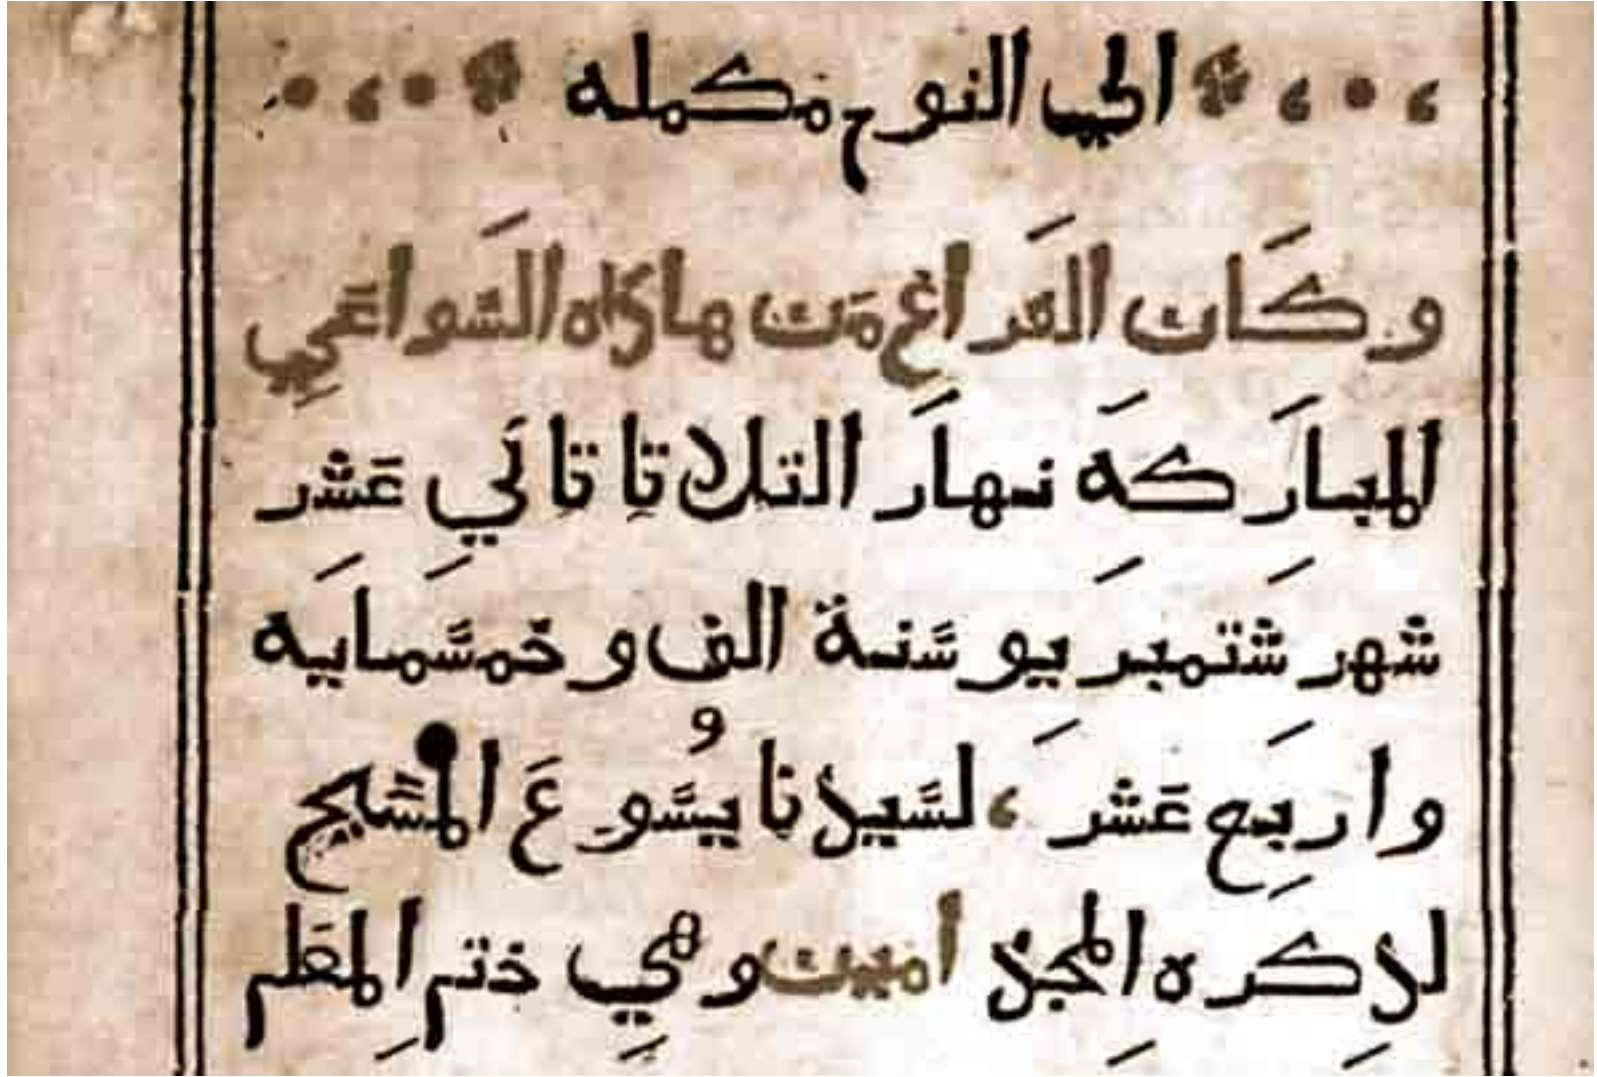 الي النوح مكمله
وكَان الفَراغ مَن هاذه السَّواعَي
المبارَكَة نهار التلاتا تاني عَشر
شهر شتمبر يو سَّنة الف و خمسَّماييه
واربَع عَشر ، لسَّيدنا يسَُّوعَ المسَّيح
لذكره المجد امين وهي ختم المعَلم